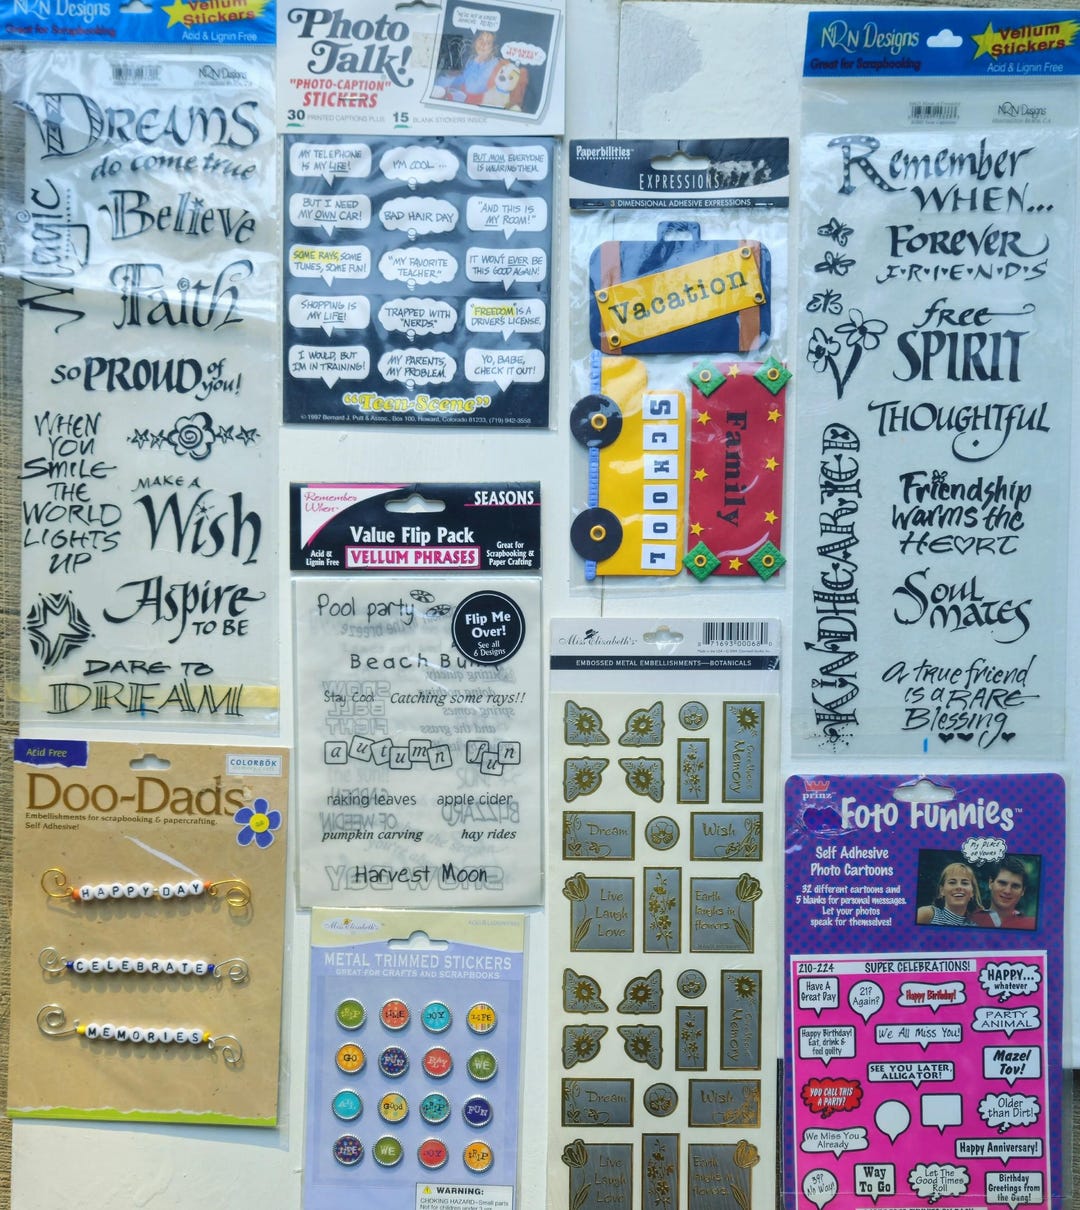 NRN Designs
Vellum
Stickers
Great for Scrapbooking
Acid & Lignin Free
NRN Designs
DREAMS
do come true
Magic
Believe
Faith
so PROUD of
you!
WHEN
YOU
SMILE
THE
WORLD
LIGHTS
UP
MAKE A
Wish
Aspire
TO BE
DARE TO
DREAM
Photo
Talk!
"PHOTO-CAPTION"
STICKERS
30 PRINTED CAPTIONS PLUS 15 BLANK STICKERS INSIDE
MY TELEPHONE
IS MY LIFE!
I'M COOL...
BUT MOM, EVERYONE
IS WEARING THEM.
BUT I NEED
MY OWN CAR!
BAD HAIR DAY
"AND THIS IS
MY ROOM!"
SOME RAYS, SOME
TUNES, SOME FUN!
"MY FAVORITE
TEACHER."
IT WON'T EVER BE
THIS GOOD AGAIN!
SHOPPING IS
MY LIFE!
TRAPPED WITH
"NERDS."
"FREEDOM" IS A
DRIVER'S LICENSE.
I WOULD, BUT
I'M IN TRAINING!
MY PARENTS,
MY PROBLEM.
YO, BABE,
CHECK IT OUT!
"Teen-Scene"
© 1997 Bernard J. Putt & Assoc., Box 100, Howard, Colorado 81233, (719) 942-3558
Paperbilities
EXPRESSIONS
3 DIMENSIONAL ADHESIVE EXPRESSIONS
Vacation
SCHOOL
Family
NRN Designs
Vellum
Stickers
Great for Scrapbooking
Acid & Lignin Free
NRN Designs
Remember
WHEN...
FOREVER
F·R·I·E·N·D·S
free
SPIRIT
THOUGHTFUL
KINDHEARTED
Friendship
warms the
HEART
SOUL
MATES
A true friend
is a RARE
Blessing
Remember
When
SEASONS
Value Flip Pack
VELLUM PHRASES
Acid &
Lignin Free
Great for
Scrapbooking &
Paper Crafting
Pool party
Flip Me
Over!
See all
6 Designs
Beach Bum
Stay Cool
Catching some rays!!
autumn fun
raking leaves
apple cider
pumpkin carving
hay rides
Harvest Moon
Acid Free
COLORBÖK
Doo-Dads
Embellishments for scrapbooking & papercrafting.
Self Adhesive!
HAPPY DAY
CELEBRATE
MEMORIES
Miss Elizabeth's
METAL TRIMMED STICKERS
GREAT FOR CRAFTS AND SCRAPBOOKS
TRIP
LIFE
JOY
LIFE
GO
FUN
PLAY
WE
ALL
GOOD
TRIP
FUN
LIFE
WE
JOY
TRIP
WARNING:
CHOKING HAZARD-Small parts
Not for children under 3 yrs.
Miss Elizabeth's
71693 00068
EMBOSSED METAL EMBELLISHMENTS—BOTANICALS
Memory
Dream
Wish
Live
Laugh
Love
Earth
laughs in
flowers.
Memory
Dream
Wish
Live
Laugh
Love
Earth
laughs in
flowers.
prinz
Foto Funnies™
Self Adhesive
Photo Cartoons
32 different cartoons and
5 blanks for personal messages.
Let your photos
speak for themselves!
My place
or yours?
210-224
SUPER CELEBRATIONS!
Have A
Great Day
21?
Again?
Happy Birthday!
HAPPY...
whatever
PARTY
ANIMAL
Happy Birthday!
Eat, drink &
feel guilty
We All Miss You!
SEE YOU LATER,
ALLIGATOR!
Mazel
Tov!
YOU CALL THIS
A PARTY?
Older
than Dirt!
We Miss You
Already
Happy Anniversary!
39?
No Way!
Way
To Go
Let The
Good Times
Roll
Birthday
Greetings from
the Gang!